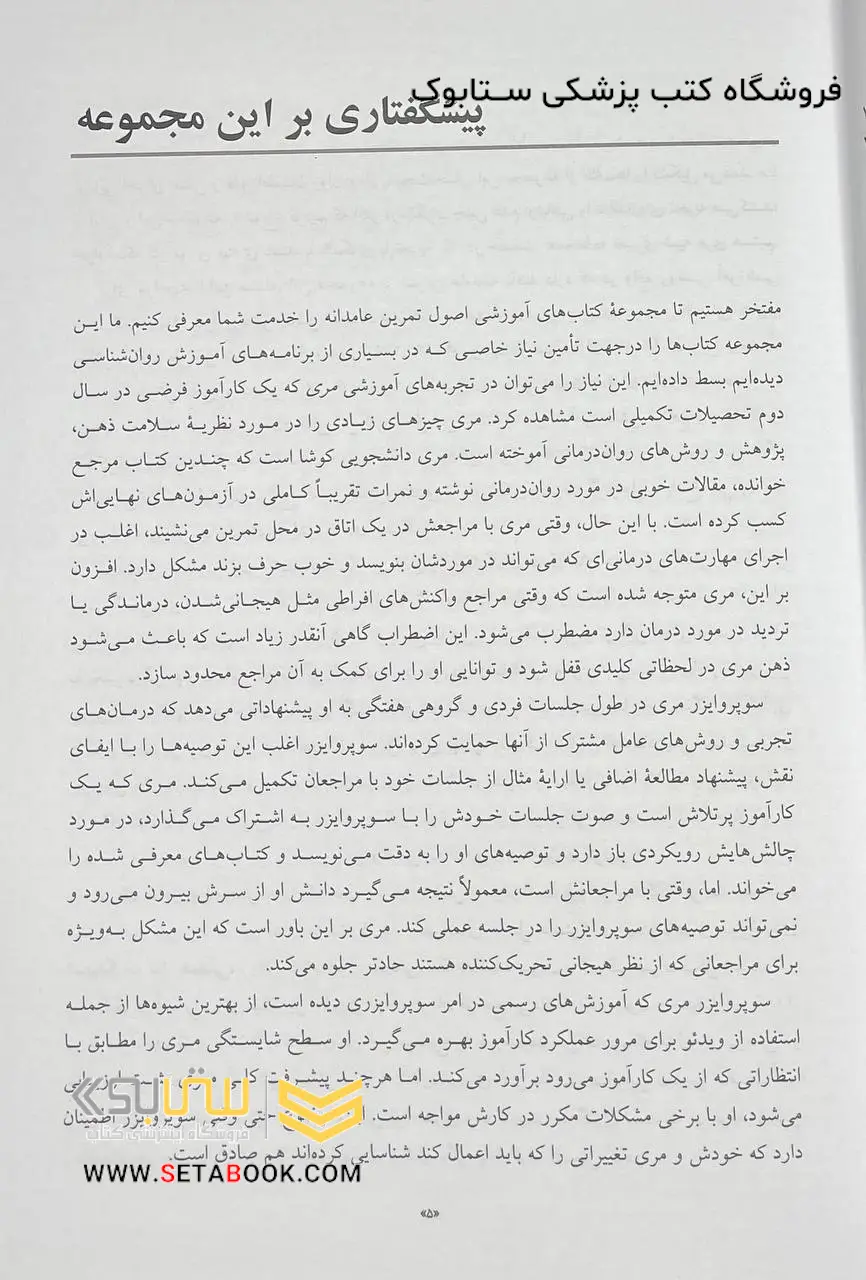 فروشگاه کتب پزشکی ستابوک
پیشگفتاری بر این مجموعه
مفتخر هستیم تا مجموعهٔ کتاب‌های آموزشی اصول تمرین عامدانه را خدمت شما معرفی کنیم. ما این
مجموعه کتاب‌ها را درجهت تأمین نیاز خاصی که در بسیاری از برنامه‌های آموزش روان‌شناسی
دیده‌ایم بسط داده‌ایم. این نیاز را می‌توان در تجربه‌های آموزشی مری که یک کارآموز فرضی در سال
دوم تحصیلات تکمیلی است مشاهده کرد. مری چیزهای زیادی را در مورد نظریهٔ سلامت ذهن،
پژوهش و روش‌های روان‌درمانی آموخته است. مری دانشجویی کوشا است که چندین کتاب مرجع
خوانده، مقالات خوبی در مورد روان‌درمانی نوشته و نمرات تقریباً کاملی در آزمون‌های نهایی‌اش
کسب کرده است. با این حال، وقتی مری با مراجعش در یک اتاق در محل تمرین می‌نشیند، اغلب در
اجرای مهارت‌های درمانی‌ای که می‌تواند در موردشان بنویسد و خوب حرف بزند مشکل دارد. افزون
بر این، مری متوجه شده است که وقتی مراجع واکنش‌های افراطی مثل هیجانی‌شدن، درماندگی یا
تردید در مورد درمان دارد مضطرب می‌شود. این اضطراب گاهی آنقدر زیاد است که باعث می‌شود
ذهن مری در لحظاتی کلیدی قفل شود و توانایی او را برای کمک به آن مراجع محدود سازد.
سوپروایزر مری در طول جلسات فردی و گروهی هفتگی به او پیشنهاداتی می‌دهد که درمان‌های
تجربی و روش‌های عامل مشترک از آنها حمایت کرده‌اند. سوپروایزر اغلب این توصیه‌ها را با ایفای
نقش، پیشنهاد مطالعهٔ اضافی یا ارایهٔ مثال از جلسات خود با مراجعان تکمیل می‌کند. مری که یک
کارآموز پرتلاش است و صوت جلسات خودش را با سوپروایزر به اشتراک می‌گذارد، در مورد
چالش‌هایش رویکردی باز دارد و توصیه‌های او را به دقت می‌نویسد و کتاب‌های معرفی شده را
می‌خواند. اما، وقتی با مراجعانش است، معمولاً نتیجه می‌گیرد دانش او از سرش بیرون می‌رود و
نمی‌تواند توصیه‌های سوپروایزر را در جلسه عملی کند. مری بر این باور است که این مشکل به‌ویژه
برای مراجعانی که از نظر هیجانی تحریک‌کننده هستند حادتر جلوه می‌کند.
سوپروایزر مری که آموزش‌های رسمی در امر سوپروایزری دیده است، از بهترین شیوه‌ها از جمله
استفاده از ویدئو برای مرور عملکرد کارآموز بهره می‌گیرد. او سطح شایستگی مری را مطابق با
انتظاراتی که از یک کارآموز می‌رود برآورد می‌کند. اما هرچند پیشرفت کلی مری
می‌شود، او با برخی مشکلات مکرر در کارش مواجه است. حتی وقتی سوپروایزر اطمینان
دارد که خودش و مری تغییراتی را که باید اعمال کند شناسایی کرده‌اند هم صادق است.
ستابوک
فروشگاه اینترنتی کتاب
WWW.SETABOOK.COM
«۵»